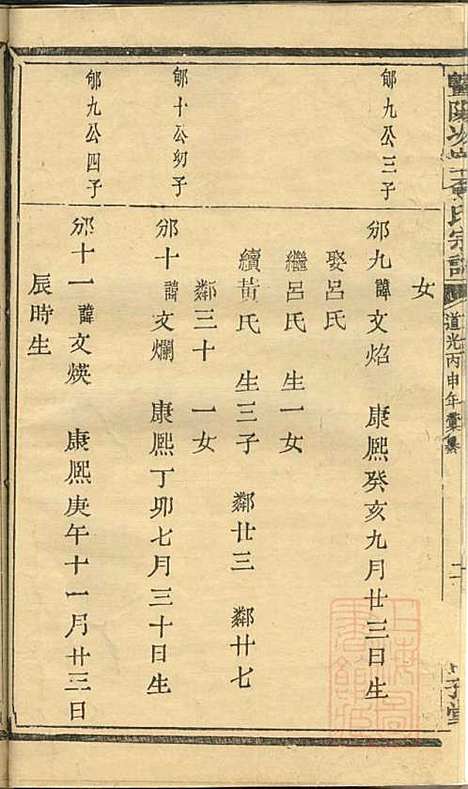 暨陽次峯 氏宗譜
道光丙申年彙纂
女
郇九公三子
邠九諱文焰 康熙癸亥九月廿三日生
娶呂氏
繼呂氏 生一女
續黃氏 生三子 鄰廿三 鄰廿七
鄰三十 一女
郇十公幼子
邠十諱文爛 康熙丁卯七月三十日生
郇九公四子
邠十一諱文煐 康熙庚午十一月廿三日
辰時生